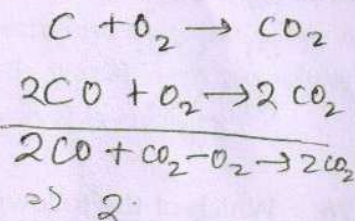 C + O₂ → CO₂
2CO + O₂ → 2 CO₂
2CO + CO₂ - O₂ → 2CO₂
=> 2.